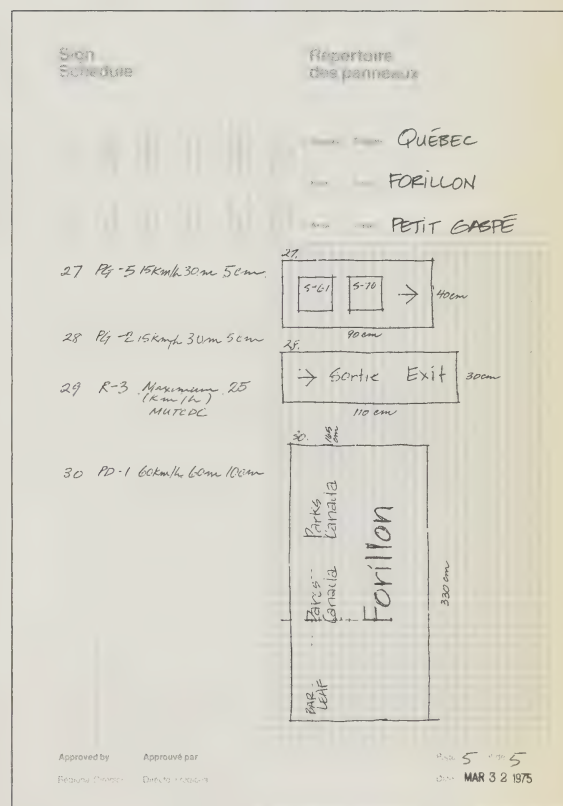 Sign
Schedule
Répertoire
des panneaux
QUÉBEC
FORILLON
PETIT GASPÉ
27 PG-5 15km/h 30m 5cm
28 PG-2 15km/h 30m 5cm
29 R-3 Maximum 25
(km/h)
MUTCDC
30 PD-1 60km/h 60m 10cm
27.
S-61 S-70 →
40cm
90cm
28.
→ Sortie Exit
30cm
110 cm
30.
Parks
Canada
Parcs
Canada
Forillon
BAR
LEAF
330 cm
Approved by Approuvé par
5 5
MAR 32 1975